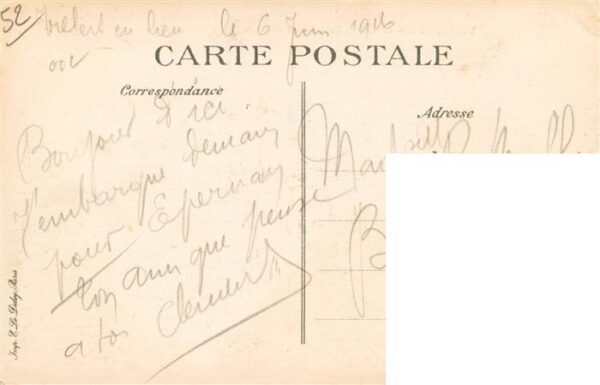 52
en lieu le 6 Juin 1916
CARTE POSTALE
Correspondance
Adresse
Bonjour d'ici
J'embarque demain
pour Epernay
ton ami que pense
a toi Clement
Imp. E. Le Deley, Paris